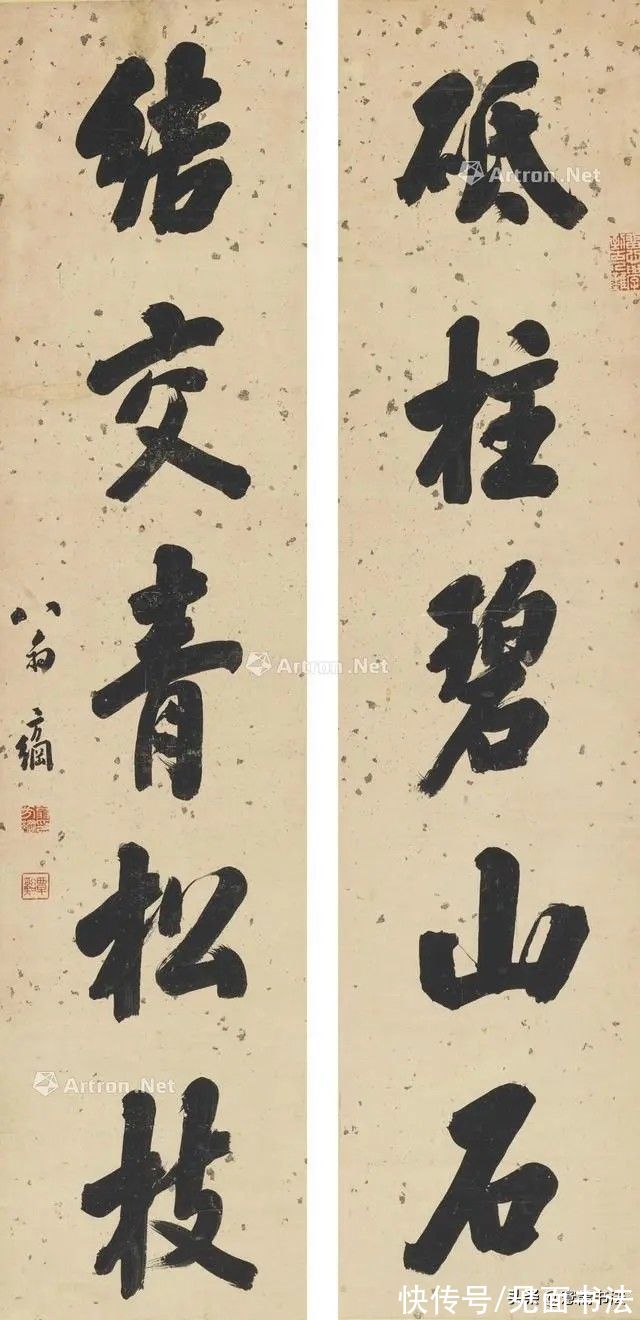 砥柱碧山石
结交青松枝
八翁
方綱
Artron.Net
Artron.Net
Artron.Net
快传号/见面书法